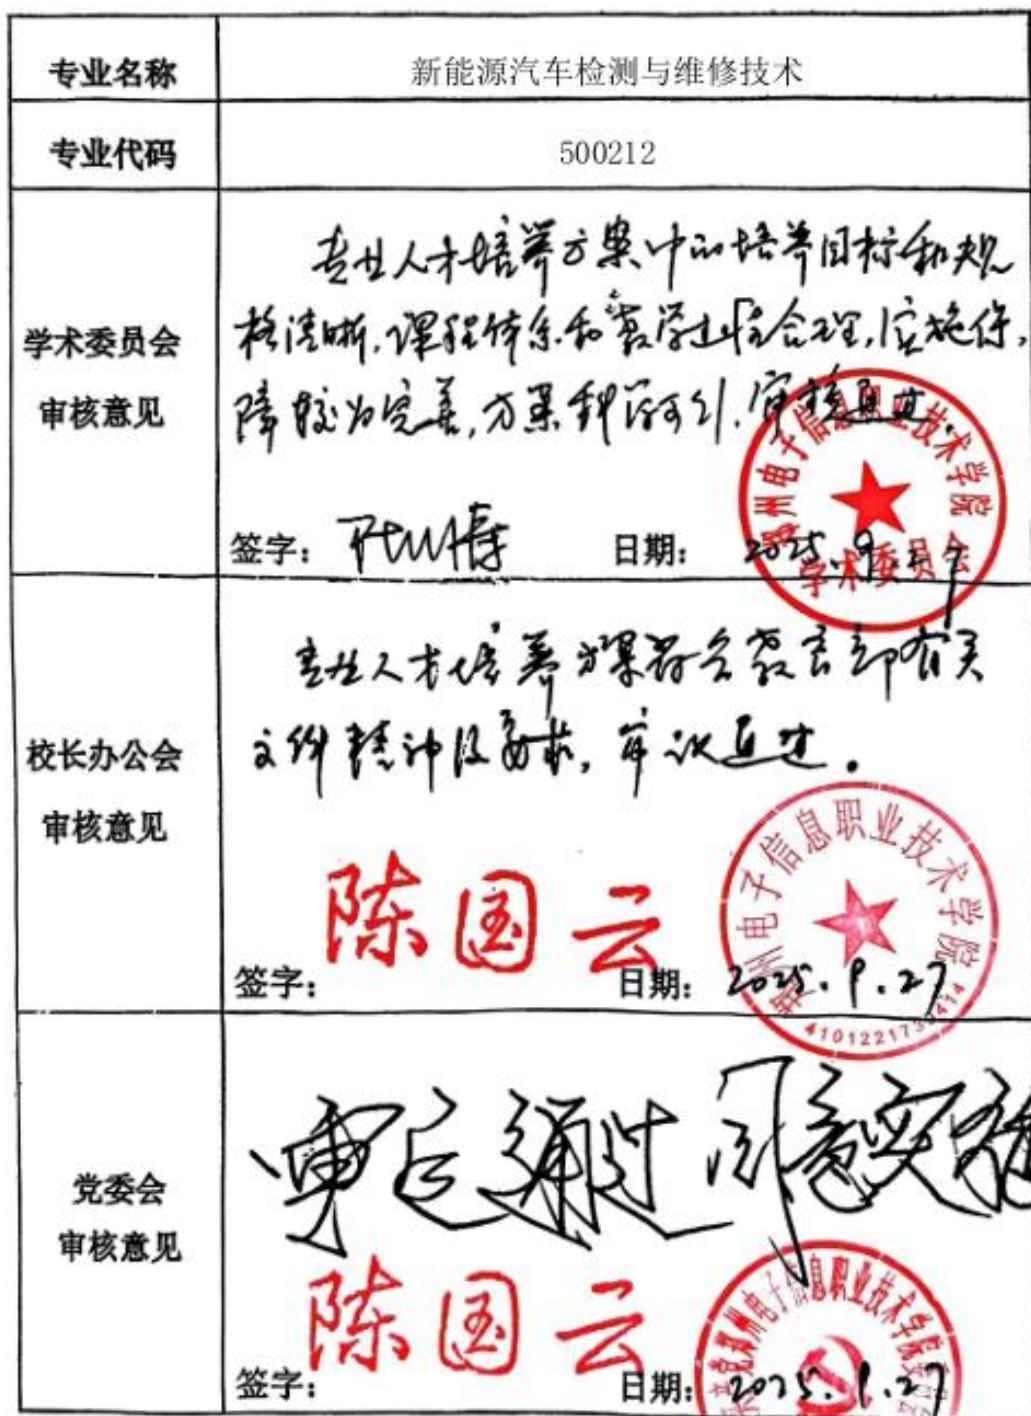 专业名称
新能源汽车检测与维修技术
专业代码
500212
学术委员会
审核意见
专业人才培养方案中的培养目标和规
格清晰,课程体系和教学进程合理,实施保
障较为完善,方案科学可行,审核通过。
签字:
日期: 2025.9.27
郑州电子信息职业技术学院
学术委员会
校长办公会
审核意见
专业人才培养方案符合教育部有关
文件精神及要求,审议通过。
签字: 陈国云
日期: 2025.9.27
郑州电子信息职业技术学院
党委会
审核意见
审定通过 同意实施
签字: 陈国云
日期: 2025.9.27
郑州电子信息职业技术学院